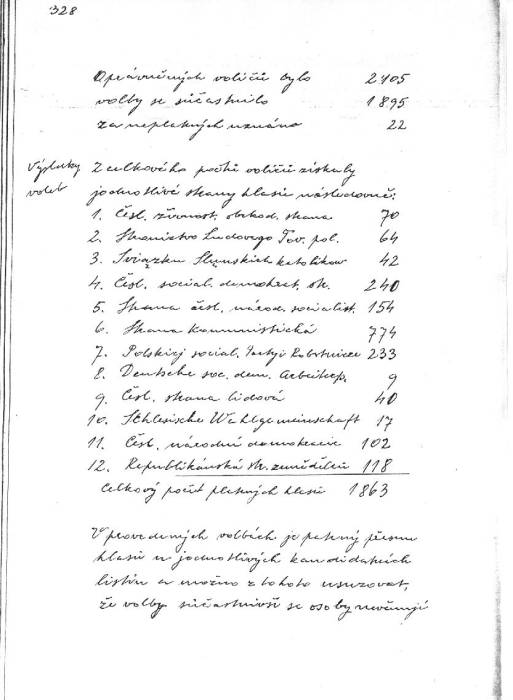 328
Oprávněných voličů bylo 2405
volby se súčastnilo 1895
za neplatných uznáno 22
Výsledky
voleb
Z celkového počtu voličů získaly
jednotlivé strany hlasů následovně:
1. Čsl. živnost. obchod. strana 70
2. Stronictvo Ludowego Tov. pol. 64
3. Związku Śląnskich katolikow 42
4. Čsl. social. demokrat. str. 240
5. Strana čsl. národ. socialist. 154
6. Strana kommunistická 774
7. Polskiej social. Partyi Robotnicze 233
8. Deutsche soc. dem. Arbeiterp. 9
9. Čsl. strana lidová 40
10. Schlesische Wahlgemeinschaft 17
11. Čsl. národní demokracie 102
12. Republikánská str. zemědělců 118
Celkový počet platných hlasů 1863
V provedených volbách je patrný přesun
hlasů u jednotlivých kandidátních
listin a možno z tohoto usuzovat,
že volby súčastnivší se osoby nevěnují